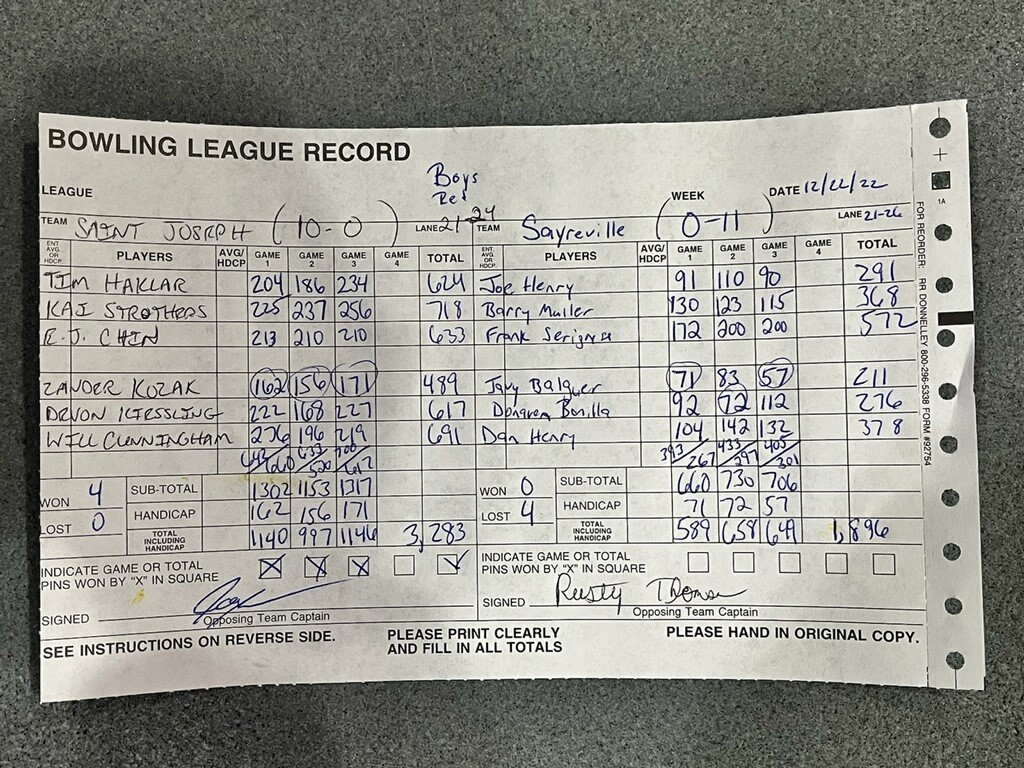 BOWLING LEAGUE RECORD
LEAGUE Boys Red WEEK DATE 12/22/22
TEAM SAINT JOSEPH (10-0) LANE 21-24 TEAM Sayreville (0-11) LANE 21-26
ENT. AVG. OR HDCP. PLAYERS AVG/HDCP GAME 1 GAME 2 GAME 3 GAME 4 TOTAL ENT. AVG. OR HDCP. PLAYERS AVG/HDCP GAME 1 GAME 2 GAME 3 GAME 4 TOTAL
TIM HAKLAR 204 186 234 624 Joe Henry 91 110 90 291
KAI STROTHERS 225 237 256 718 Barry Muller 130 123 115 368
E.J. CHIN 213 210 210 633 Frank 172 200 200 572
ZANDER KOZAK 162 156 171 489 71 83 57 211
DEVON KIESSLING 222 168 227 617 Bonilla 92 72 112 276
WILL CUNNINGHAM 276 196 219 691 Dan Henry 104 142 132 378
642/660 633/520 700/617 393/267 433/297 405/301
WON 4 SUB-TOTAL 1302 1153 1317 WON 0 SUB-TOTAL 660 730 706
LOST 0 HANDICAP 162 156 171 LOST 4 HANDICAP 71 72 57
TOTAL INCLUDING HANDICAP 1140 997 1146 3,283 TOTAL INCLUDING HANDICAP 589 658 649 1,896
INDICATE GAME OR TOTAL PINS WON BY "X" IN SQUARE X X X INDICATE GAME OR TOTAL PINS WON BY "X" IN SQUARE
SIGNED SIGNED Rusty Thomsen
Opposing Team Captain Opposing Team Captain
SEE INSTRUCTIONS ON REVERSE SIDE. PLEASE PRINT CLEARLY AND FILL IN ALL TOTALS PLEASE HAND IN ORIGINAL COPY.
1A
FOR REORDER: RR DONNELLEY 800-296-5338 FORM #92754